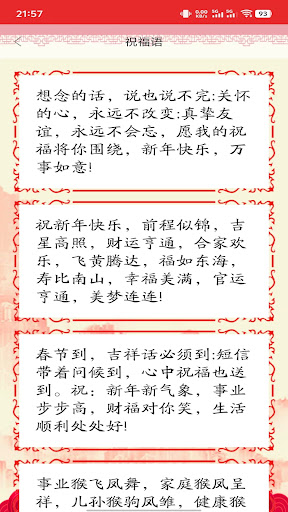 21:57
0.00 KB/S 5G 5G 93
祝福语
想念的话，说也说不完:关怀
的心，永远不改变:真挚友
谊，永远不会忘，愿我的祝
福将你围绕，新年快乐，万
事如意!
祝新年快乐，前程似锦，吉
星高照，财运亨通，合家欢
乐，飞黄腾达，福如东海，
寿比南山，幸福美满，官运
亨通，美梦连连!
春节到，吉祥话必须到:短信
带着问候到，心中祝福也送
到。祝：新年新气象，事业
步步高，财福对你笑，生活
顺利处处好!
事业猴飞凤舞，家庭猴凤呈
祥，儿孙猴驹凤雏，健康猴